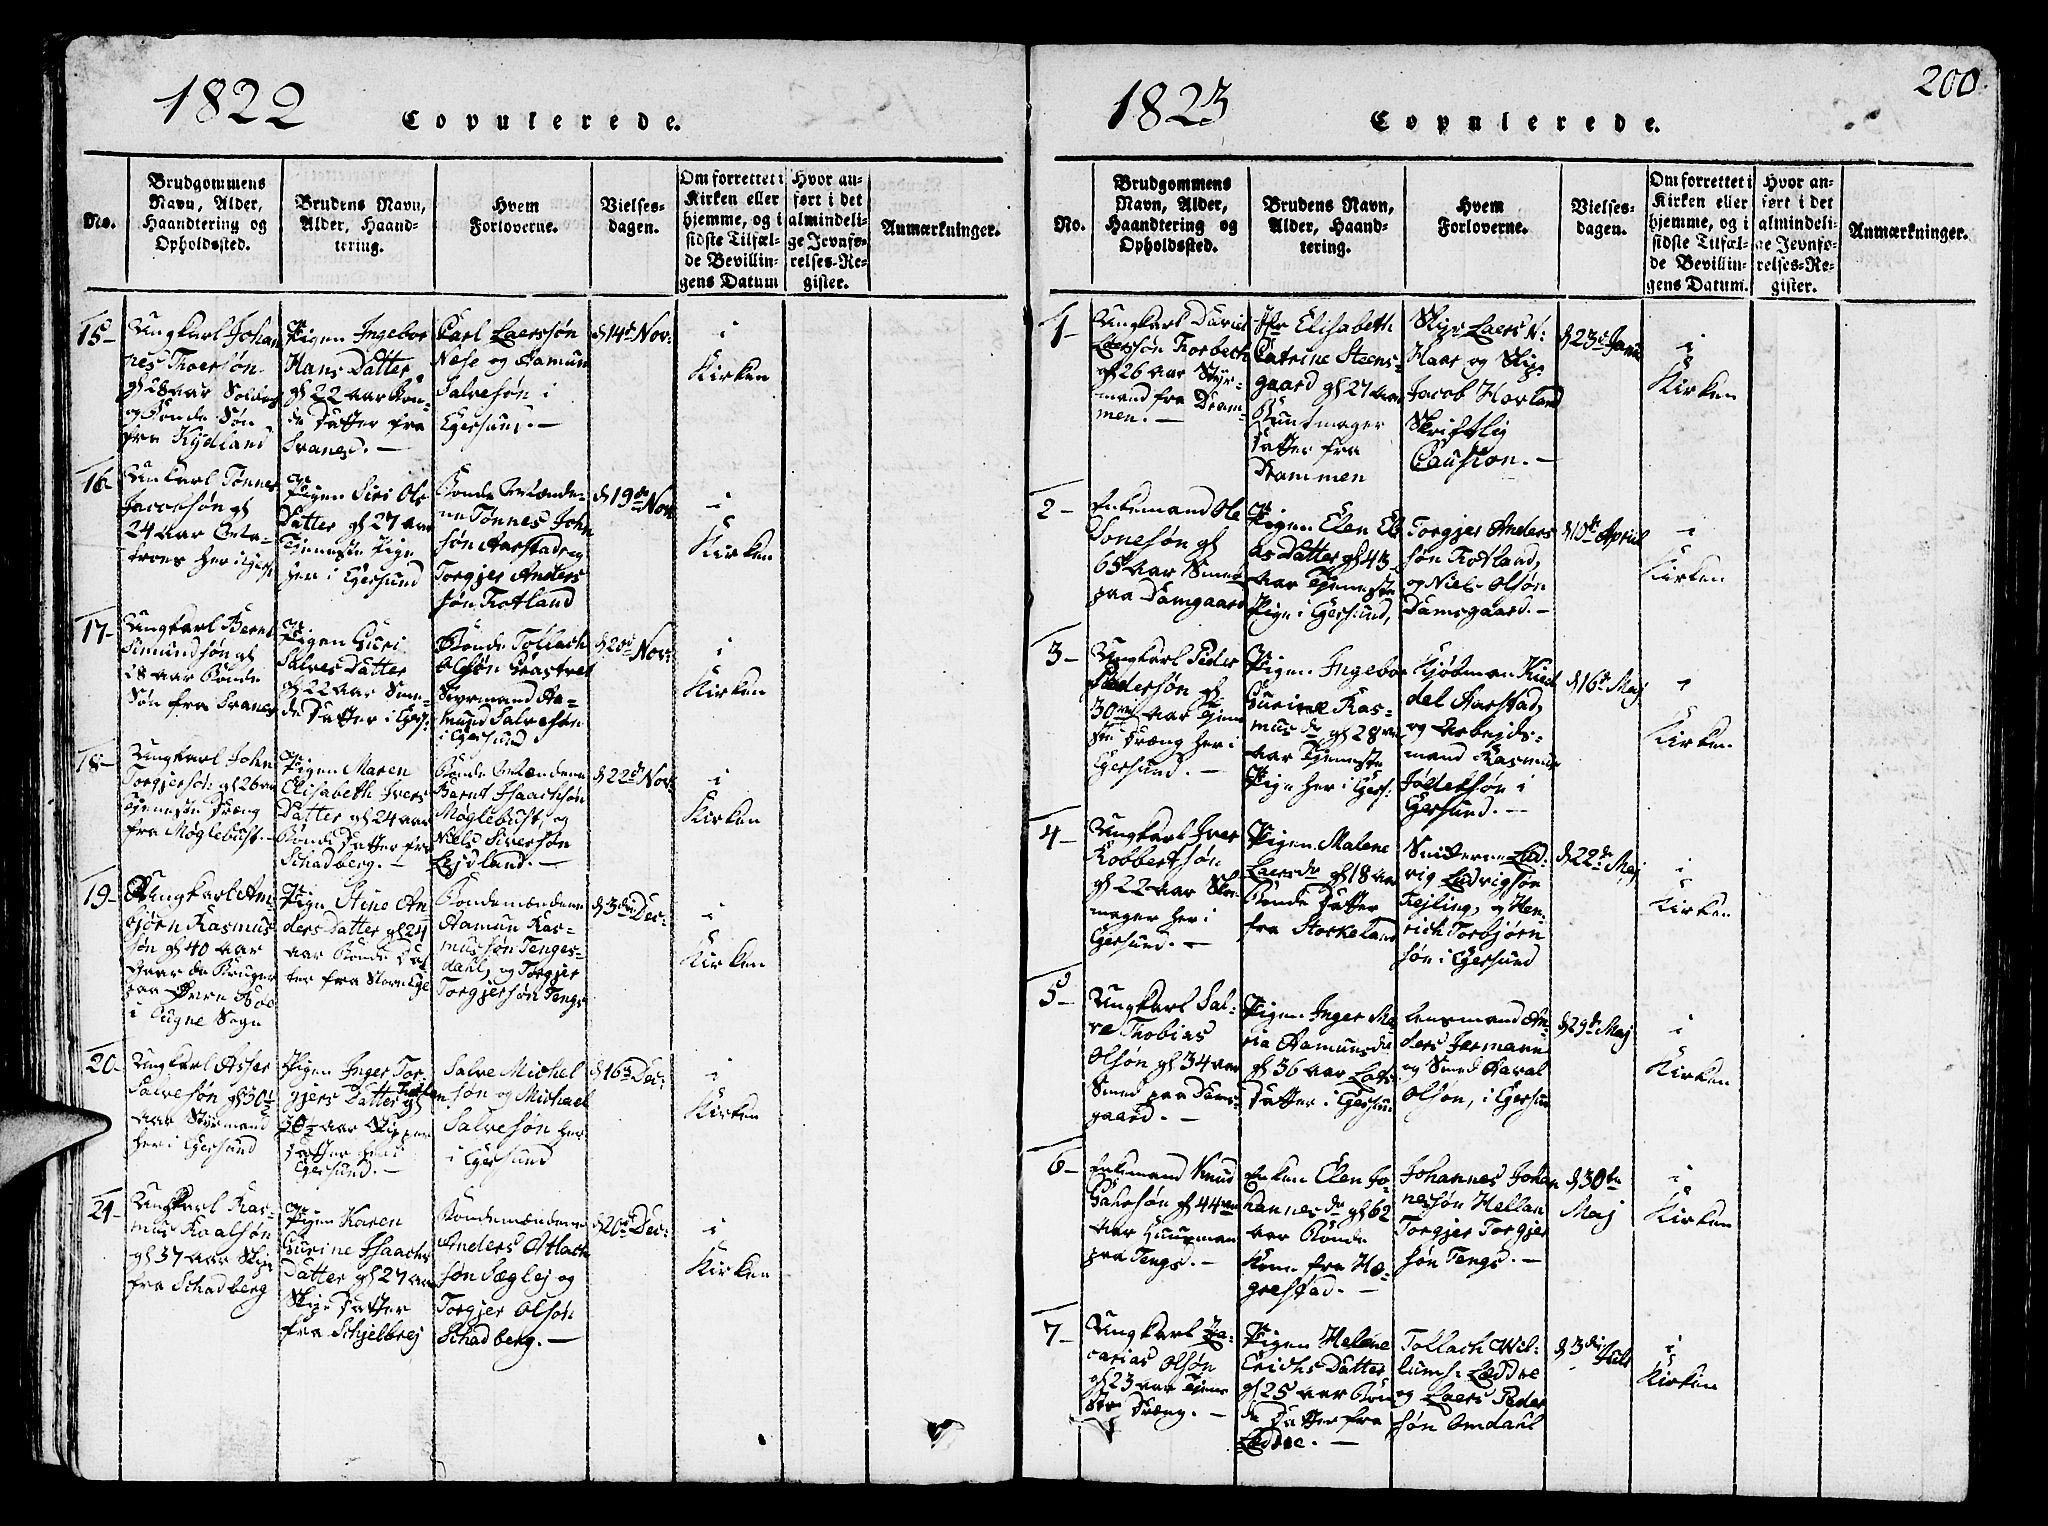 1822
Copulerede.
No.
Brudgommens
Navn, Alder,
Haandtering og
Opholdssted.
Brudens Navn,
Alder, Haand-
tering.
Hvem
Forloverne.
Vielses-
dagen.
Om forrettet i
Kirken eller
hjemme, og i
sidste Tilfæl-
de Bevillin-
gens Datum
Hvor an-
ført i det
almindeli-
ge Jevnfø-
relses-Re-
gister.
Anmærkninger.
15-
Ungkarl Johan
nes Thoersøn
gl 28 aar
og Bonde Søn
fra Kydland
Pigen Ingebor
Hans Datter
gl 22 aar Bon-
de Datter fra
Svanes. -
Carl Laerssøn
Nese og Aamun
Salvesøn i
Egersund. -
d 14de Nov:
i
Kirken
16-
Ungkarl Tønnes
Jacobsøn gl
24 aar
her i Egers
Pigen Siri Ols
Datter gl 27 aar
Tjeneste Pige
her i Egersund
Bonde Mænde-
ne Tønnes John
søn Aarstad og
Torgjer Anders
søn Kotland
d 19de Nov
i
Kirken
17-
Ungkarl Bernt
Simundsøn gl
28 aar Bonde
Søn fra Svanes
Pigen Guri
Salves Datter
gl 22 aar Smi-
de Datter i Egers:
Bonde Tollach
Olsøn
Styrmand Aa-
mund Salvesøn
i Egersund
d 20de Nov:
i
Kirken
18-
Ungkarl John
Torgjersøn gl 26 aar
Tjeneste Dræng
fra Møglebust -
Pigen Maren
Elisabeth Ivers
Datter gl 24 aar
Bonde Datter fra
Schadberg. -
Bonde Mændene
Bernt Isaachsøn
Møglebust, og
Niels Siversøn
Lejdland. -
d 22de Nov:
i
Kirken
19-
Ungkarl Am
bjørn Rasmus
søn gl 40 aar
Gaardbruger
paa Øvre Boe
i Lugne Sogn
Pige Stine An
ders Datter gl 24
aar Bonde Dat
ter fra
Bondemændene
Aamun Ras-
mussøn Tenges-
dahl, og Torgjer
Torgjersøn Tengs
d 3die Dec:
i
Kirken
20-
Ungkarl Asser
Salvesøn gl 30½
aar Styrmand
her i Egersund
Pigen Inger Tor-
gjers Datter gl
30½ aar Skipper
Datter her i
Egersund. -
Salve Michel
søn og Michael
Salvesøn her
i Egersund
d 16de Dec:
i
Kirken
21-
Ungkarl Ras-
mus Roalsøn
gl 37 aar Skip:
fra Schadberg
Pigen Karen
Gurine Isaachs
Datter gl 27 aar
Skip: Datter
fra Schjelbrej
Bondemændene
Anders Atlach
søn Sæglej og
Torgjer Olsøn
Schadberg. -
d 20de Dec:
i
Kirken
1823
Copulerede.
200
No.
Brudgommens
Navn, Alder,
Haandtering og
Opholdssted.
Brudens Navn,
Alder, Haand-
tering.
Hvem
Forloverne.
Vielses-
dagen.
Om forrettet i
Kirken eller
hjemme, og i
sidste Tilfæl-
de Bevillin-
gens Datum.
Hvor an-
ført i det
almindeli-
ge Jevnfø-
relses-Re-
gister.
Anmærkninger.
1-
Ungkarl Daniel
Laerssøn Torbech
gl 26 aar Styr-
mand fra Dram-
men. -
Jfr Elisabeth
Catrine Steens-
gaard gl 27 aar
Buntmager
Datter fra
Drammen
Skipr Laers N:
Haar og Skip:
Jacob Hovland
Skriftlig
Caution. -
d 23de Janu
i
Kirken
2-
Enkemand Ole
Tonesøn gl
65 aar Smed
paa Damgaard
Pigen Elen El
as Datter gl 43
aar Tjeneste
Pige i Egersund,
Torgjer Anders
søn Kotland,
og Niels Olsøn
Damsgaard. -
d 10de April
i
Kirken
3-
Ungkarl Peder
Pedersøn gl
30 aar Tjene
ste Dræng her i
Egersund. -
Pigen Ingebor
Gurine Ras-
mus dr gl 28
aar Tjeneste
Pige her i Egers:
Kjøbman Kied
del Aarstad,
og Arbejds-
mand Rasmus
Joldeksøn i
Egersund. -
d 16de Maj
i
Kirken
4-
Ungkarl Iver
Robbertsøn
gl 22 aar Sko-
mager her i
Egersund. -
Pigen Malene
Laers dr gl 18 aar
Bonde Datter
fra Storkeland
Smiderne Lud-
vig Ludvigsøn
Fejling, og Hen-
rich Torbjørn
søn i Egersund
d 22de Maj
i
Kirken
5-
Ungkarl Sal-
ve Thobias
Olsøn gl 34 aar
Smed paa Dams-
gaard. -
Pigen Inger Ma-
ria Aamunds dr
gl 36 aar Lods
Datter i Egersund
Lensmand An-
ders Jermann
og Smed Haval
Olsøn, i Egersun
d 29de Maj
i
Kirken
6-
Enkemand Knud
gl 44
aar Huusman
paa Tengs. -
Enken Elen Jo-
hannes dr gl 62
aar Bonde
Kone fra Hæ-
grestad. -
Johannes Johan
nesøn Hellan
Torgjer Torgjer
søn Tengs. -
d 30te
Maj
i
Kirken
7-
Ungkarl Za-
carias Olsøn
gl 23 aar Tjene
ste Dræng. -
Pigen Helene
Erichs Datter
gl 25 aar Bon
de Datter fra
Læddre. -
Tollach Wil-
lums: Læddre
og Laers Peder
søn Omdahl
d 3die Juli
i
Kirken